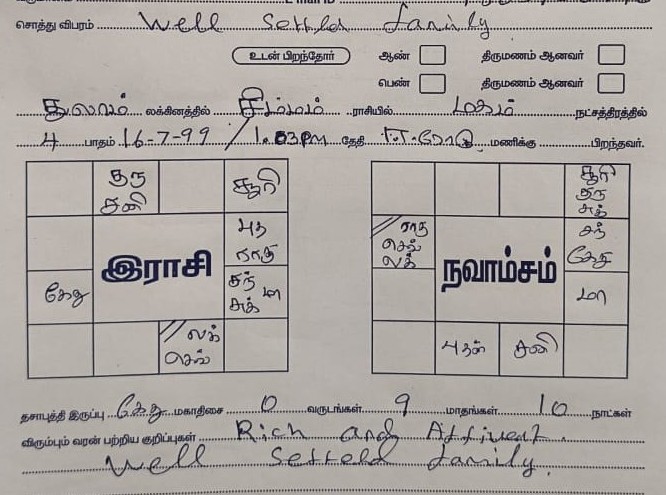 சொத்து விபரம் Well Settld family
உடன் பிறந்தோர் ஆண் திருமணம் ஆனவர்
பெண் திருமணம் ஆனவர்
துலாம் லக்கினத்தில் சிம்மம் ராசியில் மகம் நட்சத்திரத்தில்
4 பாதம் 16-7-99 / 1.03PM தேதி மணிக்கு பிறந்தவர்.
குரு சூரி
சனி
புத
ராகு
இராசி
கேது சந் மா
சுக்
// லக்
செவ்
சூரி
குரு
சுக்
// ராகு சந்
செவ் கேது
லக்
நவாம்சம்
மா
புதன் சனி
தசாபுத்தி இருப்பு கேது மகாதிசை 0 வருடங்கள் 9 மாதங்கள் 10 நாட்கள்
விரும்பும் வரன் பற்றிய குறிப்புகள் Rich and Affluent.
Well Setteld family.